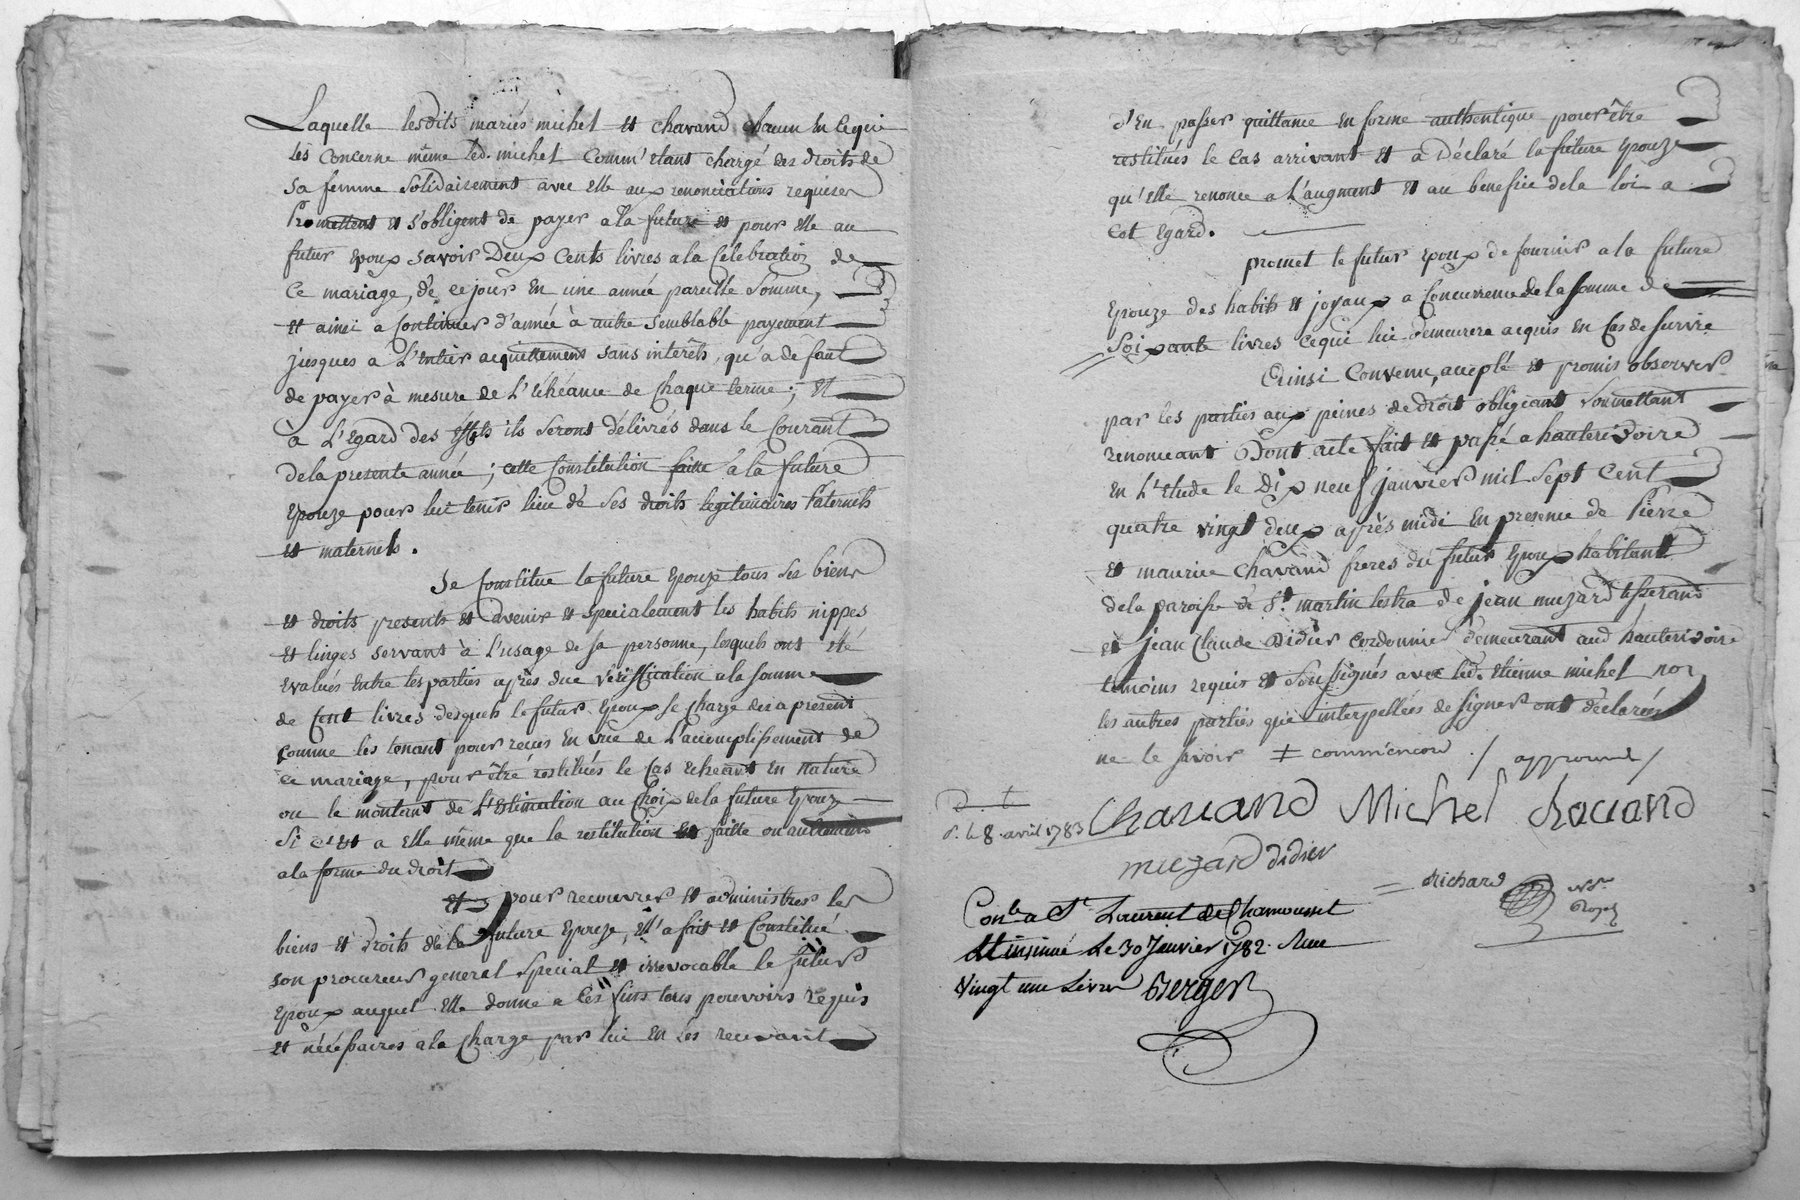 Laquelle lesdits mariés michel et chavand chacun en cequi
les concerne même led. michel comm'etant chargé des droits de
sa femme solidairement avec elle aux renonciations requises
Promettent et s'obligent de payer a la future et pour elle au
futur epoux savoir Deux Cents livres a la Célébration de
ce mariage, de ce jour en une année pareille somme,
et ainsi a Continuer d'année à autre semblable payement
jusques a L'entier acquittement sans interêts, qu'a défaut
de payer à mesure de L'échéance de Chaque terme; et
à L'Egard des effets ils seront délivrés dans le Courant
dela presente année; cette Constitution faitte à la future
Epouze pour lui tenir lieu de ses droits legitimaires Paternels
et maternels.
Se Constitue la future Epouze tous ses biens
et droits presents et avenir et specialement les habits nippes
et linges servant à L'usage de sa personne, lesquels ont eté
evalués entre les parties après due vériffication a la somme
de Cent livres desquels le futur Epoux se charge des a present
comme les tenant pour reçus en vue de L'accomplissement de
ce mariage, pour être restitués le Cas échéant en nature
ou le montant de L'estimation au Choix de la future Epouze
Si c'est a elle même que la restitution est faitte ou autrement
a la forme du droit
et pour recouvrer et administrer les
biens et droits de la future Epouze, ell'a fait et Constitué
son procureur general special et irrevocable le futur
Epoux auquel elle donne a ces fins tous pouvoirs requis
et nécéssaires a la Charge par lui en les recevant
d'En passer quittance en forme authentique pour être
restitués le cas arrivant et a déclaré la future Epouze
qu'elle renonce a L'augment et au benefice dela loi a
cet Egard.
promet le futur epoux de fournir a la future
Epouze des habits et joyaux a Concurrence de la somme de
Soixante livres cequi lui demeurera acquis en Cas de survie
Ainsi Convenu, accepté et promis observer
par les parties aux peines de droit obligeant soumettant
renonceant Dont acte fait et passé a hauterivoire
en L'Etude le Dix neuf janvier mil sept Cent
quatre vingt deux après midi en presence de Pierre
et maurice Chavand freres du futur Epoux habitants
dela paroisse de St. martin lestra de jean muzard tisserand
et jean Claude Didier cordonnier demeurant aud hauterivoire
temoins requis et soussignés avec led. Etienne michel non
les autres parties qui interpellées de signer ont déclarées
ne le savoir ‡ commencer ./ approuvé /
Chavand Michel chavand
R. 8. avril 1783
muzard didier
Richard nre. Royal
Conlé a St. Laurent de Chamousset
et insinué Le 30 Janvier 1782. Reçu
Vingt une Livres Berger